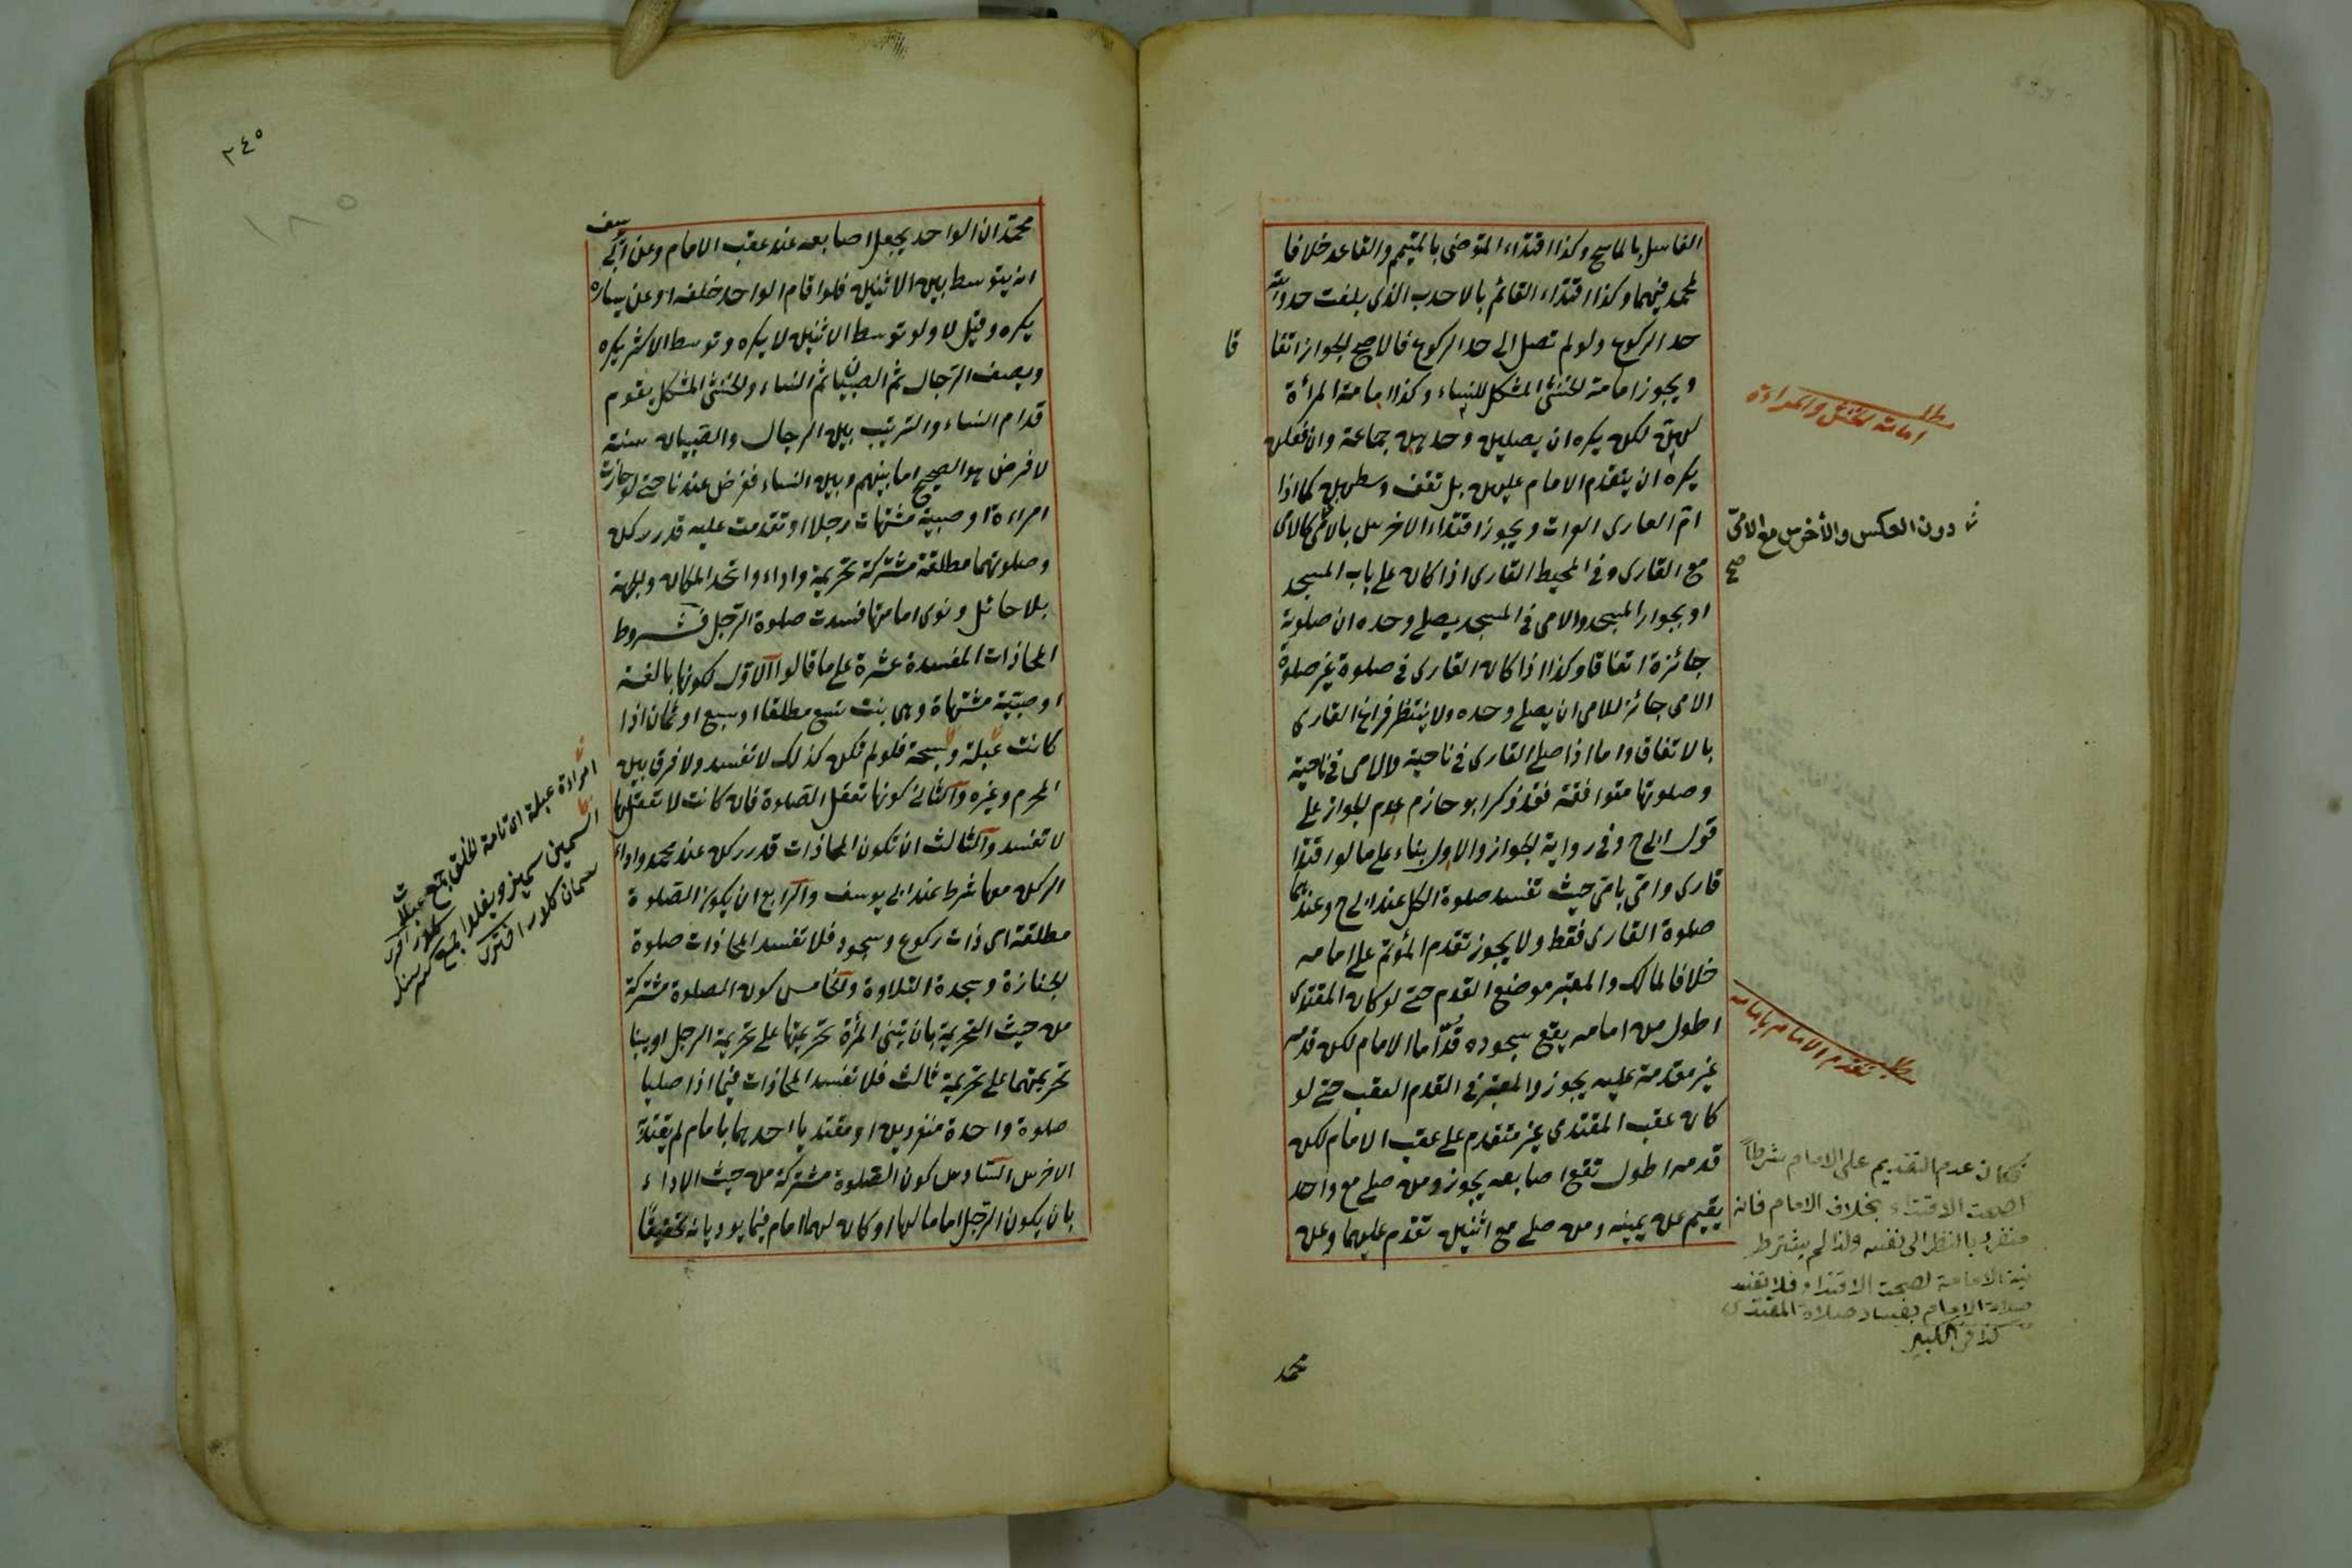 الغاسل بالماسح وكذا اقتداء المتوضى بالمتيمم والقاعد خلافا
لمحمد فيهما وكذا اقتداء القائم بالاحدب الذى بلغت حدوبته
حد الركوع ولو لم تصل الى حد الركوع فالاصح الجواز اتفا
قا
ويجوز امامة الخنثى المشكل للنساء وكذا امامة المرأة
لهن لكن يكره ان يصلين وحدهن جماعة وان فعلن
يكره ان يتقدم الامام عليهن بل تقف وسطهن كما اذا
ام العارى العراة ويجوز اقتداء الاخرس بالامى كالامى
مع القارى وفى المحيط القارى اذا كان على باب المسجد
او بجوار المسجد والامى فى المسجد يصلى وحده ان صلوته
جائزة اتفاقا وكذا اذا كان القارى فى صلوة غير صلوة
الامى جائز للامى ان يصلى وحده ولا ينتظر فراغ القارى
بالاتفاق واما اذا صلى القارى فى ناحية والامى فى ناحية
وصلوتها متوافقة فقد ذكر ابو حازم عدم الجواز على
قول ابى ح وفى رواية الجواز والاول بناء على ما لو اقتدا
قارى وامى بامى حيث تفسد صلوة الكل عند ابى ح وعندهما
صلوة القارى فقط ولا يجوز تقدم المؤتم على امامه
خلافا لمالك والمعتبر موضع القدم حتى لو كان المقتدى
اطول من امامه يقع سجوده قداما الامام لكن قدمه
غير مقدمة عليه يجوز والمعتبر فى القدم العقب حتى لو
كان عقب المقتدى غير متقدم على عقب الامام لكن
قدمه اطول تقع اصابعه يجوز ومن صلى مع واحد
يقيم عن يمينه ومن صلى مع اثنين تقدم عليهما وعن
محمد
مطلب
امامة الخنثى والمرادة
دون العكس والأخرس مع الامى
صح
مطلب تقدم الامام بامامه
فكان عدم التقديم على الامام شرطاً
لصحة الاقتداء بخلاف الامام فانه
منفرد بالنظر الى نفسه ولذا لم يشترط
نية الامامة لصحة الاقتداء فلا تفسد
صلاة الامام بفساد صلاة المقتدى
كذا فى الكبير
٢٤٥
١٨٥
محمد ان الواحد يجعل اصابعه عند عقب الامام وعن ابى
يوسف
انه يتوسط بين الاثنين فلو اقام الواحد خلفه او عن يساره
يكره وقيل لا ولو توسط الاثنين لا يكره وتوسط الاكثر يكره
ويصف الرجال ثم الصبيان ثم النساء والخنثى المشكل يقوم
قدام النساء والترتيب بين الرجال والصبيان سنة
لا فرض هو الصحيح اما بينهم وبين النساء ففرض عندنا حتى لو حاذت
امراءة او صبية مشتهات رجلا او تقدمت عليه قدر ركن
وصلوتهما مطلقة مشتركة تحريمة واداء واتحد المكان والجهة
بلا حائل ونوى امامتها فسدت صلوة الرجل فشروط
المحاذات المفسدة عشرة على ما قالوا الاول كونها بالغة
او صبية مشتهاة وهى بنت تسع مطلقا او سبع او ثمان اذا
كانت عبلة وسمينة فلو لم تكن كذلك لا تفسد ولا فرق بين
المحرم وغيره والثانى كونها تعقل الصلوة فان كانت لا تعقلها
لا تفسد والثالث ان تكون المحاذات قدر ركن عند محمد واداء
الركن معها شرط عند ابى يوسف والرابع ان يكون الصلوة
مطلقة اى ذات ركوع وسجود فلا تفسد المحاذات صلوة
الجنازة وسجدة التلاوة والخامس كون الصلوة مشتركة
من حيث التحريمة بان تبنى المرأة تحريمتها على تحريمة الرجل او يبنيا
تحريمتهما على تحريمة ثالث فلا تفسد المحاذات فيما اذا صليا
صلوة واحدة منفردين او مقتديا احدهما بامام لم يقتد به
الاخرس السادس كون الصلوة مشتركة من حيث الاداء
بان يكون الرجل اماما لها او كان لهما امام فيما يوديانه تحقيقا
امرادة عبلة اى تامة الخلق الجمع عبلات